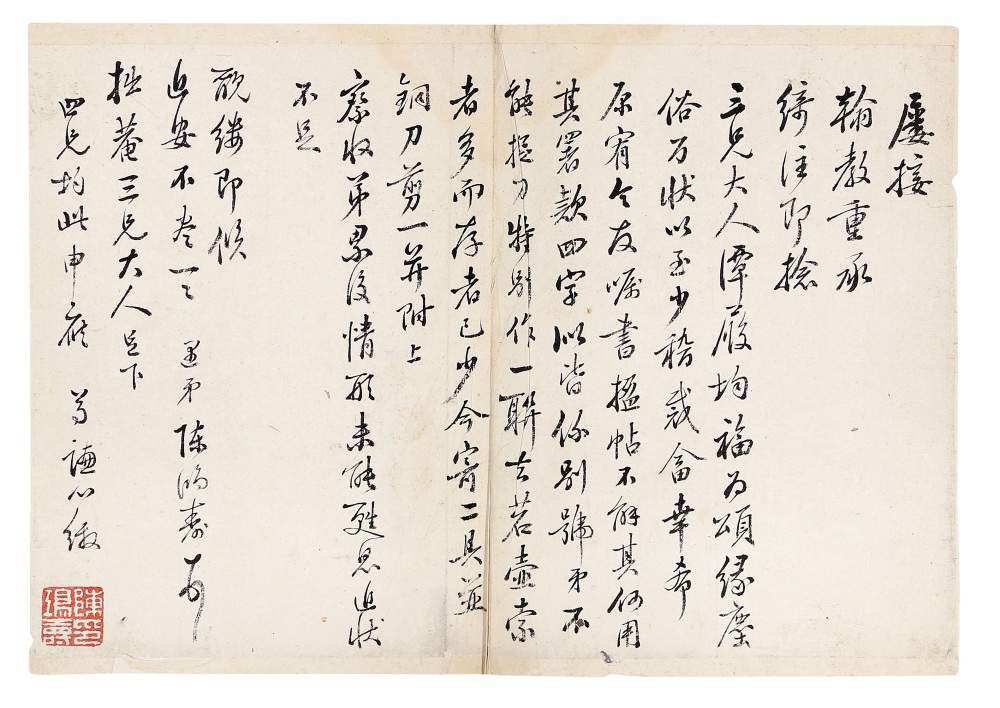 屡接
翰教重承
绮注即捻
三兄大人潭履均福为頌緣塵
俗万状以至少稽裁畣幸希
原宥令友嘱書楹帖不解其何用
其署款四字似皆係别號弟不
能捉刀特别作一聯去茗壺索
者多而存者已少今寄二具並
銅刀剪一并附上
察收弟累後情形未能甦息近状
不足
覶缕即候
近安不尽一一 愚弟陳鴻壽
拙菴三兄大人足下
四兄均此申候 芳謙心缴
陳鴻壽印